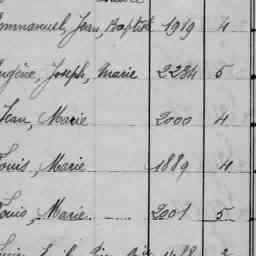 Emmanuel, Jean, Baptiste 1919 4
Eugène, Joseph, Marie 2284 5
Jean, Marie 2000 4
Louis, Marie 1889 4
Louis, Marie 2001 5